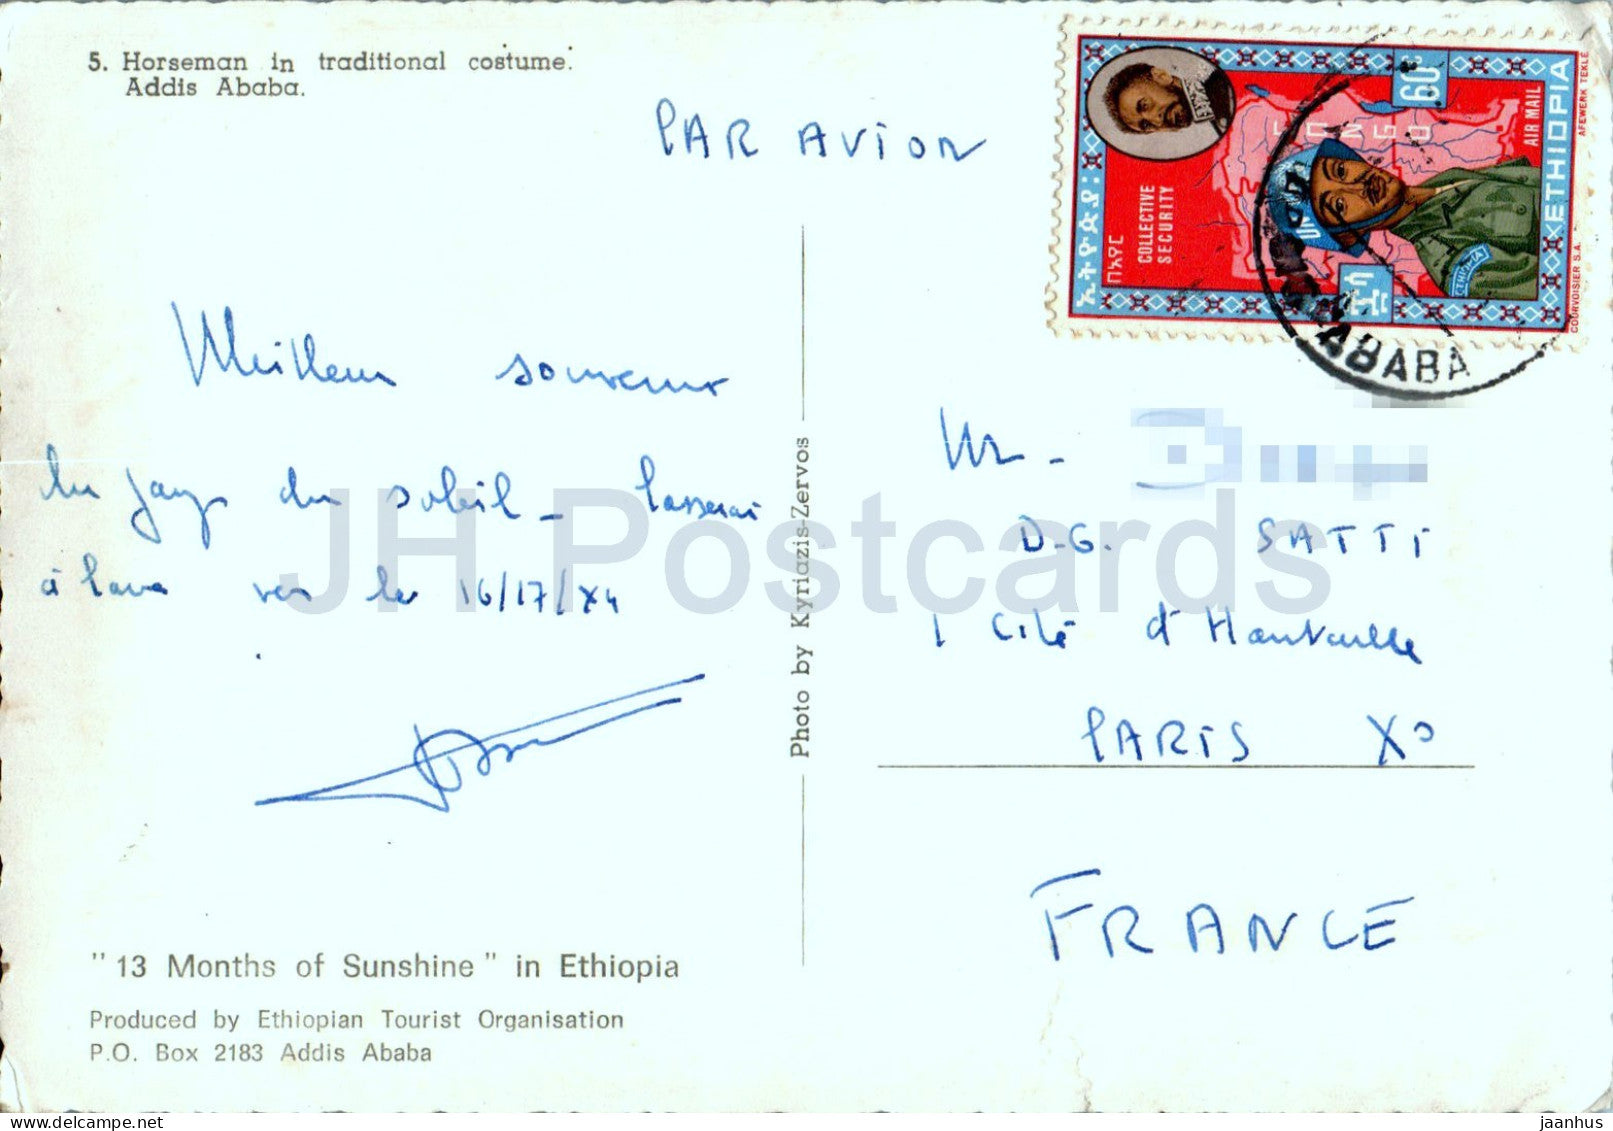 5. Horseman in traditional costume.
Addis Ababa.
PAR AVION
ኢትዮጵያ፡
በአየር
COLLECTIVE
SECURITY
CONGO
60
AIR MAIL
ETHIOPIA
AFEWERK TEKLE
COURVOISIER S.A.
ETHIOPIA
ABABA
Meilleur souvenir
du pays du soleil - Passerai
à Paris vers le 16/17/X4
Mr -
D.G. SATTI
1 Cité d'Hauteville
PARIS X°
FRANCE
Photo by Kyriazis-Zervos
JH Postcards
"13 Months of Sunshine" in Ethiopia
Produced by Ethiopian Tourist Organisation
P.O. Box 2183 Addis Ababa
delcampe.net
jaanhus